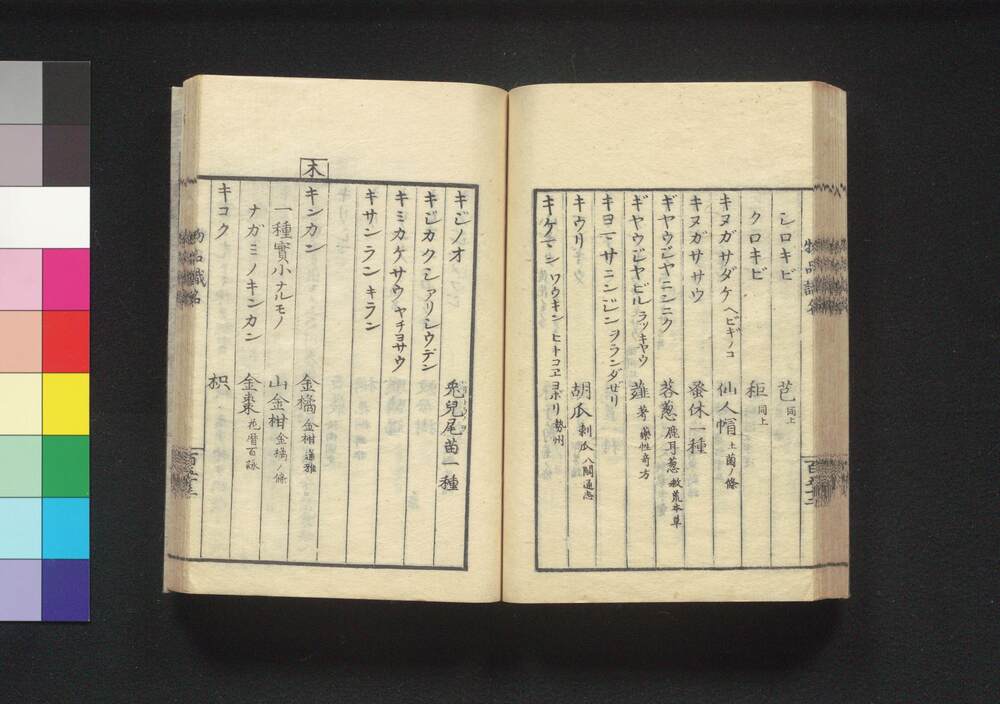 シロキビ 芑 同上
クロキビ 秬 同上
キヌガサダケ ヘビキノコ 仙人帽 土菌ノ條
キヌガササウ 蚤休一種
ギヤウジヤニンニク 茖葱 鹿耳葱 救荒本草
ギヤウジヤビル ラツキヤウ 薤
キヨマサニンジン ヲランダゼリ
キウリ 胡瓜 刺瓜 八閩通志
キケマン ワウキン ヒトコヱヨボリ 勢州
キジノオ 兎兒尾苗一種
キジカクシ アリシウデン
キミカケサウ ヤチヨサウ
キサンラン キラン
木
キンカン 金橘 金柑 通雅
一種實小ナルモノ 山金柑 金橘ノ條
ナガミノキンカン 金棗 花暦百詠
キコク 枳
物品識名
百五十二